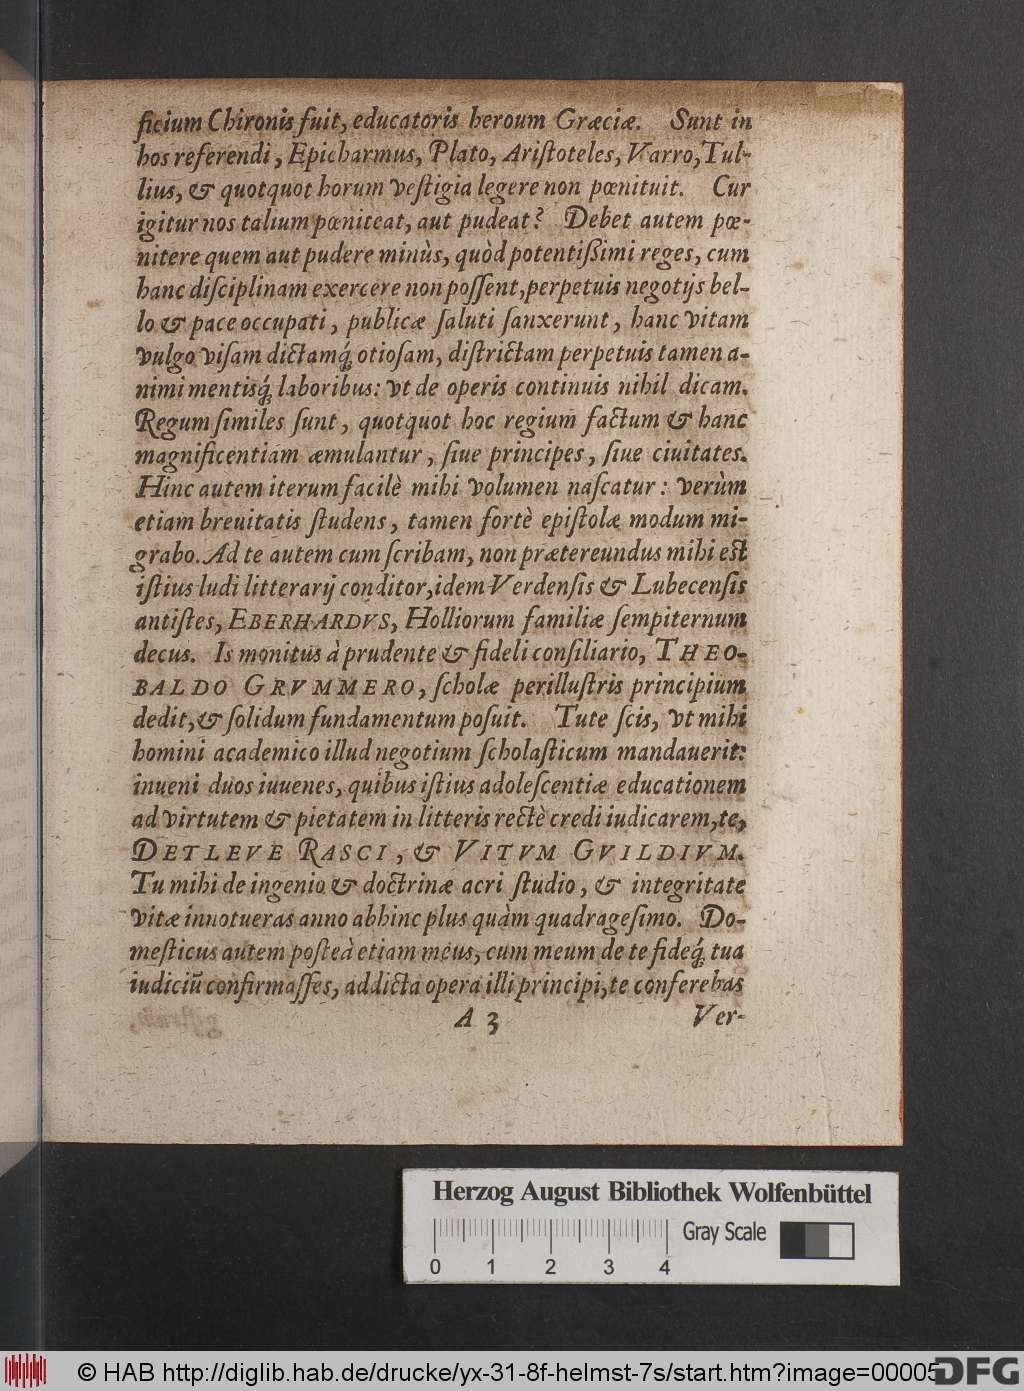 ficium Chironis fuit, educatoris heroum Græciæ. Sunt in
hos referendi, Epicharmus, Plato, Ariſtoteles, Varro, Tul-
lius, & quotquot horum veſtigia legere non pœnituit. Cur
igitur nos talium pœniteat, aut pudeat? Debet autem pœ-
nitere quem aut pudere minùs, quòd potentißimi reges, cum
hanc diſciplinam exercere non poſſent, perpetuis negotijs bel-
lo & pace occupati, publicæ ſaluti ſanxerunt, hanc vitam
vulgo viſam dictamq́; otioſam, diſtrictam perpetuis tamen a-
nimi mentisq́; laboribus: vt de operis continuis nihil dicam.
Regum ſimiles ſunt, quotquot hoc regium factum & hanc
magnificentiam æmulantur, ſiue principes, ſiue ciuitates.
Hinc autem iterum facilè mihi volumen naſcatur: verùm
etiam breuitatis ſtudens, tamen fortè epiſtolæ modum mi-
grabo. Ad te autem cum ſcribam, non prætereundus mihi eſt
iſtius ludi litterarij conditor, idem Verdenſis & Lubecenſis
antiſtes, EBERHARDVS, Holliorum familiæ ſempiternum
decus. Is monitus à prudente & fideli conſiliario, THEO-
BALDO GRVMMERO, ſcholæ perilluſtris principium
dedit, & ſolidum fundamentum poſuit. Tute ſcis, vt mihi
homini academico illud negotium ſcholaſticum mandauerit:
inueni duos iuuenes, quibus iſtius adoleſcentiæ educationem
ad virtutem & pietatem in litteris rectè credi iudicarem, te,
DETLEVE RASCI, & VITVM GVILDIVM.
Tu mihi de ingenio & doctrinæ acri ſtudio, & integritate
vitæ innotueras anno abhinc plus quàm quadrageſimo. Do-
meſticus autem poſteà etiam meus, cum meum de te fideq́; tua
iudiciū confirmaſſes, addicta opera illi principi, te conferebas
A 3 Ver-
Herzog August Bibliothek Wolfenbüttel
Gray Scale
0 1 2 3 4
© HAB http://diglib.hab.de/drucke/yx-31-8f-helmst-7s/start.htm?image=00005
DFG